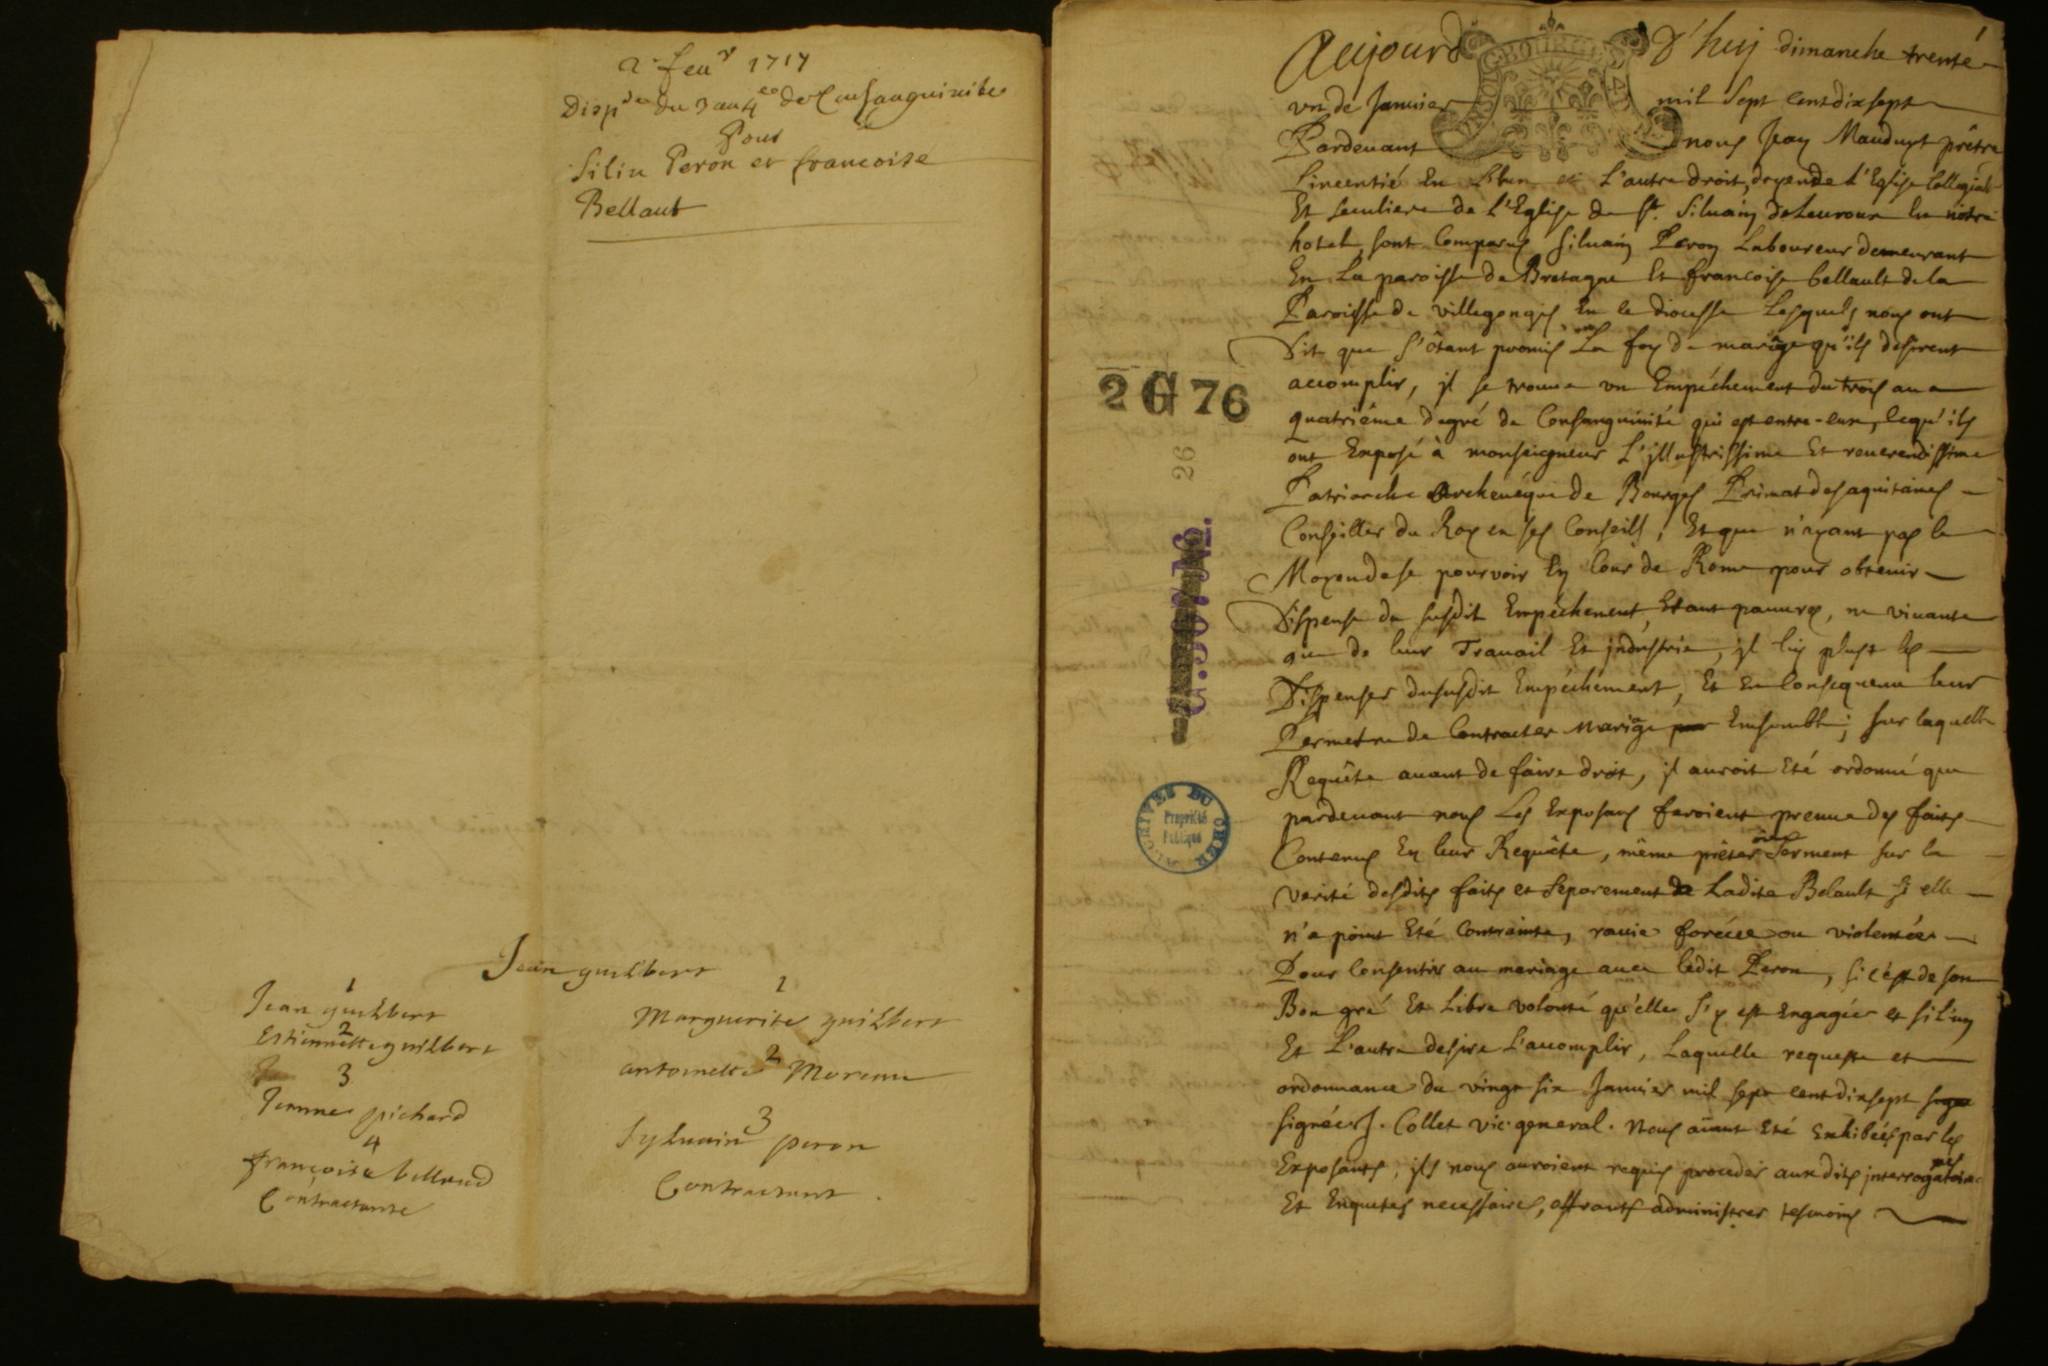 2 feur 1717
Dispse du 3 au 4e de Consanguinité
Pour
Silin Peron et francoise
Bellaut
Jean guilbert
1
Jean guilbert
2
Estiennette guilbert
3
Jeanne pichard
4
françoise bellaud
Contractante
1
Marguerite guilbert
2
antoinette Moreau
3
Sylvain peron
Contractant
2 G 76
26
ARCHIVES DU CHER
Propriété
Publique
1
Aujourd'huy dimanche trente
un de Januier mil Sept cent dix sept
Pardeuant nous Jean Mauduyt prêtre
Lincentié En L'un et L'autre droit, doyen de L'Eglise Collegiale
Et seculiere de L'Eglise de St. Siluain de Leuroux En notre
hotel, sont Comparus Siluain Peron Laboureur demeurant
En La paroisse de Bretagne Et francoise bellault de la
Paroisse de villegongis En ce diocesse Lesquels nous ont
Dit que S'étant promis La foy de mariage qu'ils desirent
accomplir, il se trouue un Empéchement du trois au
quatriéme degré de Consanguinité qui est entre-eux, lequ'ils
ont Exposé à monseigneur L'illustrissime Et reuerendissime
Patriarche Archeuéque de Bourges Primat des aquitaines
Conseiller du Roy en ses Conseils, Et que n'ayant pas le
Moyen de se pourvoir En Cour de Rome pour obtenir
Dispense du susdit Empéchement, Etant pauures, ne viuants
que de leur Trauail Et industrie, il luy plust les
Dispenser du susdit Empéchement, Et en Consequence leur
Permetre de Contracter Mariage Ensemble; sur laquelle
Requéte auant de faire droit, il auroit Eté ordonné que
pardeuant nous Les Exposans feroient preuue des faits
Contenus En leur Requéte, même préter Serment sur la
verité desdits faits et Separement de Ladite Belault si elle
n'a point Eté Contrainte, rauie forcée ou violentée
Pour Consentir au mariage auec ledit Peron, si c'est de son
Bon gré Et Libre volonté qu'elle S'y est Engagée et si l'un
Et L'autre desire L'accomplir, Laquelle requeste et
ordonnance du vingt six Januier mil sept cent dix sept
signée J. Collet vic. general. Nous aiant Eté Exhibées par les
Exposants, ils nous auroient requis proceder auxdits interrogatoires
Et Enquetes necessaires, offrants administrer tesmoins